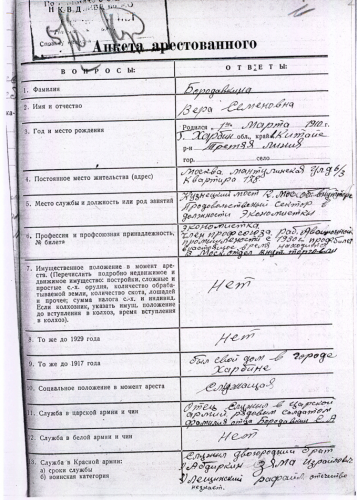 Н К В Д
Анкета арестованного
ВОПРОСЫ:
ОТВЕТЫ:
1. Фамилия
Бородавкина
2. Имя и отчество
Вера Семеновна
3. Год и место рождения
Родился 1го Марта 1910 г.
г. Харбин обл., край Китай
р-н Третья линия
гор. село
4. Постоянное место жительства (адрес)
Москва
Квартира 135
5. Место службы и должность или род занятий
Кузнецкий мост
Продовольственный сектор в
должности экономистки
6. Профессия и профсоюзная принадлежность,
№ билета
экономистка
Член профсоюза раб. Авиационной
промышленности с 1930 г.
7. Имущественное положение в момент аре-
ста. (Перечислить подробно недвижимое и
движимое имущество: постройки, сложные и
простые с.-х. орудия, количество обрабаты-
ваемой земли, количество скота, лошадей
и прочее; сумма налога с.-х. и индивид.
Если колхозник, указать имущ. положение
до вступления в колхоз, время вступления
в колхоз).
Нет
8. То же до 1929 года
Нет
9. То же до 1917 года
был свой дом в городе
Харбине
10. Социальное положение в момент ареста
Служащая
11. Служба в царской армии и чин
Отец служил в царской
армии рядовым солдатом
фамилия отца Бородавкин С. А
12. Служба в белой армии и чин
Нет
13. Служба в Красной армии:
а) сроки службы
б) воинская категория
Служил двоюродный брат
1) Абдиркин Зяма Израилович
2) Лещинский Рафаил отчество
неизвест.